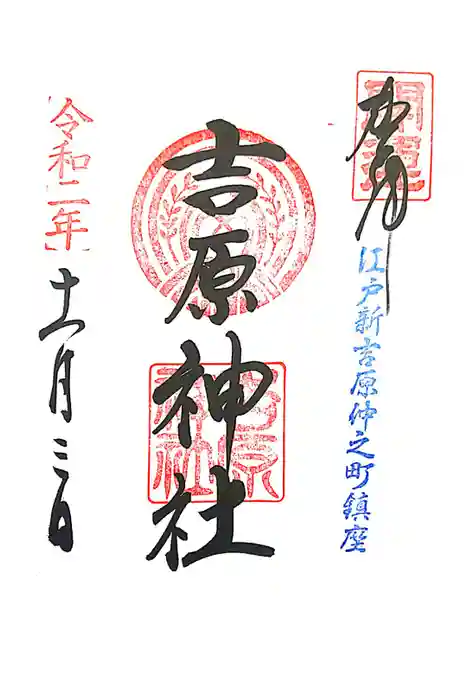 開運
奉拝
江戸新吉原仲之町鎮座
吉原神社
吉原神社
令和二年
十一月三日